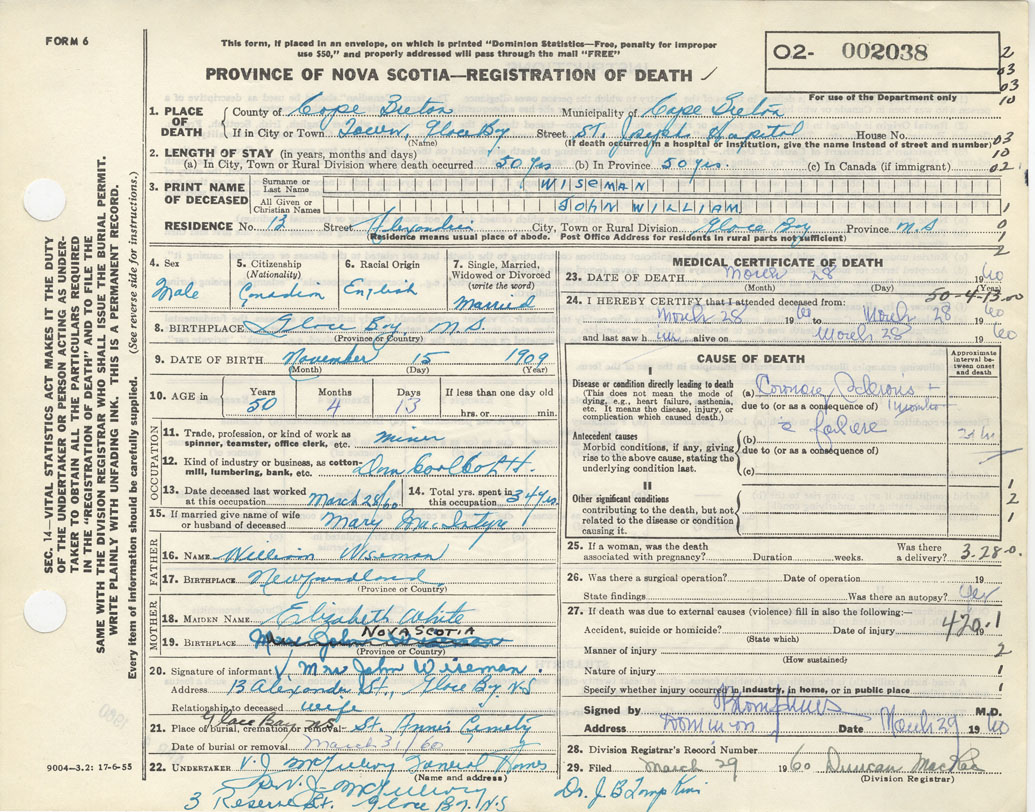 FORM 6
This form, if placed in an envelope, on which is printed "Dominion Statistics—Free, penalty for improper
use $50," and properly addressed will pass through the mail "FREE"
O2- 002038
For use of the Department only
2
03
03
10
PROVINCE OF NOVA SCOTIA—REGISTRATION OF DEATH
1. PLACE OF DEATH
County of Cape Breton Municipality of Cape Breton
If in City or Town Town, Glace Bay Street St. Joseph Hospital House No.
(Name) (If death occurred in a hospital or institution, give the name instead of street and number)
03
10
02
2. LENGTH OF STAY (in years, months and days)
(a) In City, Town or Rural Division where death occurred 50 yrs (b) In Province 50 yrs. (c) In Canada (if immigrant)
3. PRINT NAME OF DECEASED
Surname or Last Name WISEMAN
All Given or Christian Names JOHN WILLIAM
1
0
1
2
RESIDENCE No. 13 Street Alexandria City, Town or Rural Division Glace Bay Province N.S
(Residence means usual place of abode. Post Office Address for residents in rural parts not sufficient)
4. Sex
Male
5. Citizenship
(Nationality)
Canadian
6. Racial Origin
English
7. Single, Married, Widowed or Divorced
(write the word)
Married
8. BIRTHPLACE Glace Bay, N.S.
(Province or Country)
9. DATE OF BIRTH November 15 1909
(Month) (Day) (Year)
10. AGE in
Years Months Days If less than one day old
50 4 13 hrs. or min.
OCCUPATION
11. Trade, profession, or kind of work as
spinner, teamster, office clerk, etc. miner
12. Kind of industry or business, as cotton-
mill, lumbering, bank, etc. Dom Coal Co
13. Date deceased last worked
at this occupation March 28/60
14. Total yrs. spent in
this occupation 34 yrs.
15. If married give name of wife
or husband of deceased Mary MacIntyre
FATHER
16. NAME William Wiseman
17. BIRTHPLACE Newfoundland
(Province or Country)
MOTHER
18. MAIDEN NAME Elizabeth White
19. BIRTHPLACE NOVA SCOTIA
(Province or Country)
20. Signature of informant Mrs John Wiseman.
Address 13 Alexander St., Glace Bay N.S
Relationship to deceased wife
21. Place of burial, cremation or removal Glace Bay, N.S St. Anne's Cemetry
Date of burial or removal March 31/60
22. UNDERTAKER V. J. McGillvray Funeral Homes
(Name and address)
Per V. J. McGillvray
3 Reserve St. Glace Bay. N.S
MEDICAL CERTIFICATE OF DEATH
23. DATE OF DEATH March 28 1960
(Month) (Day) (Year)
50-4-13.00
24. I HEREBY CERTIFY that I attended deceased from:
March 28 1960 to March 28 1960
and last saw him alive on March 28 1960
CAUSE OF DEATH
Approximate interval between onset and death
I
Disease or condition directly leading to death
(This does not mean the mode of
dying, e.g., heart failure, asthenia,
etc. It means the disease, injury, or
complication which caused death.)
(a) Coronary Sclerosis +
due to (or as a consequence of)
Antecedent causes
Morbid conditions, if any, giving
rise to the above cause, stating the
underlying condition last.
(b)
due to (or as a consequence of)
(c)
II
Other significant conditions
contributing to the death, but not
related to the disease or condition
causing it.
1
2
1
25. If a woman, was the death
associated with pregnancy? Duration weeks. Was there
a delivery? 3.28-0.
26. Was there a surgical operation? Date of operation 19
State findings Was there an autopsy? Yes
27. If death was due to external causes (violence) fill in also the following:—
420.1
Accident, suicide or homicide? Date of injury 19
(State which)
Manner of injury 2
(How sustained)
Nature of injury 1
Specify whether injury occurred in industry, in home, or in public place 1
Signed by M.D.
Address Dominion Date March 29 1960
28. Division Registrar's Record Number
29. Filed March 29 1960 Duncan MacRae
(Division Registrar)
Dr. J.B Tompkins
SEC. 14—VITAL STATISTICS ACT MAKES IT THE DUTY
OF THE UNDERTAKER OR PERSON ACTING AS UNDER-
TAKER TO OBTAIN ALL THE PARTICULARS REQUIRED
IN THE "REGISTRATION OF DEATH" AND TO FILE THE
SAME WITH THE DIVISION REGISTRAR WHO SHALL ISSUE THE BURIAL PERMIT.
WRITE PLAINLY WITH UNFADING INK. THIS IS A PERMANENT RECORD.
Every item of information should be carefully supplied. (See reverse side for instructions.)
9004—3.2: 17-6-55